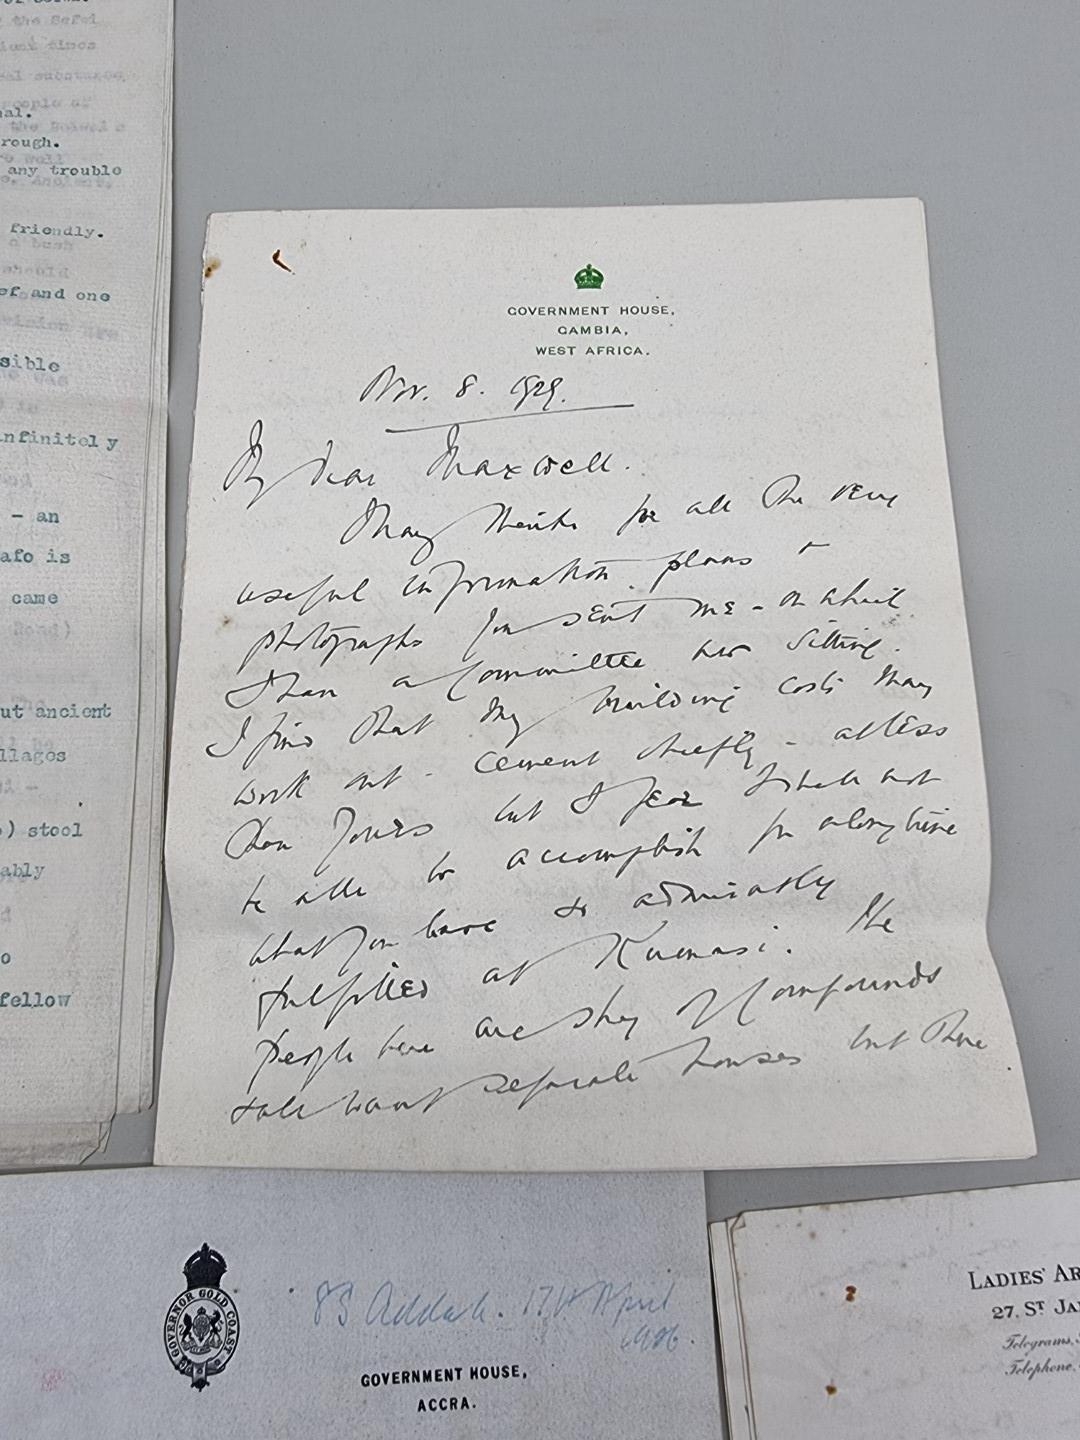 the Sefwi
times
substance
people of
nal.
rough.
well
any trouble
friendly.
a bush
should
ef and one
sible
was
in
nfinitely
- an
afo is
came
Road)
ut ancient
llages
) stool
ably
o
fellow
GOVERNMENT HOUSE,
GAMBIA,
WEST AFRICA.
Nov. 8. 1929.
My dear Maxwell.
Many thanks for all the very
useful information, plans &
photographs you sent me - on which
I have a Committee now sitting.
I find that my building costs may
work out - cement chiefly - at less
than yours but I fear I shall not
be able to accomplish for a long time
what you have so admirably
fulfilled at Kumasi. The
people here are shy of compounds
& all want separate houses but there
GOVERNOR GOLD COAST
SS Addah. 17th April
1906.
GOVERNMENT HOUSE,
ACCRA.
LADIES' AR
27, ST JA
Telegrams,
Telephone.